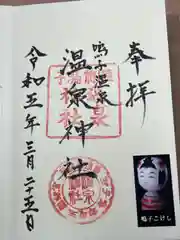 奉拝
鳴子温泉
温泉神社
令和五年三月二十五日
鳴子こけし